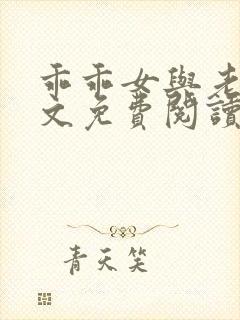 乖乖女與老
文免費閱讀
青天笑